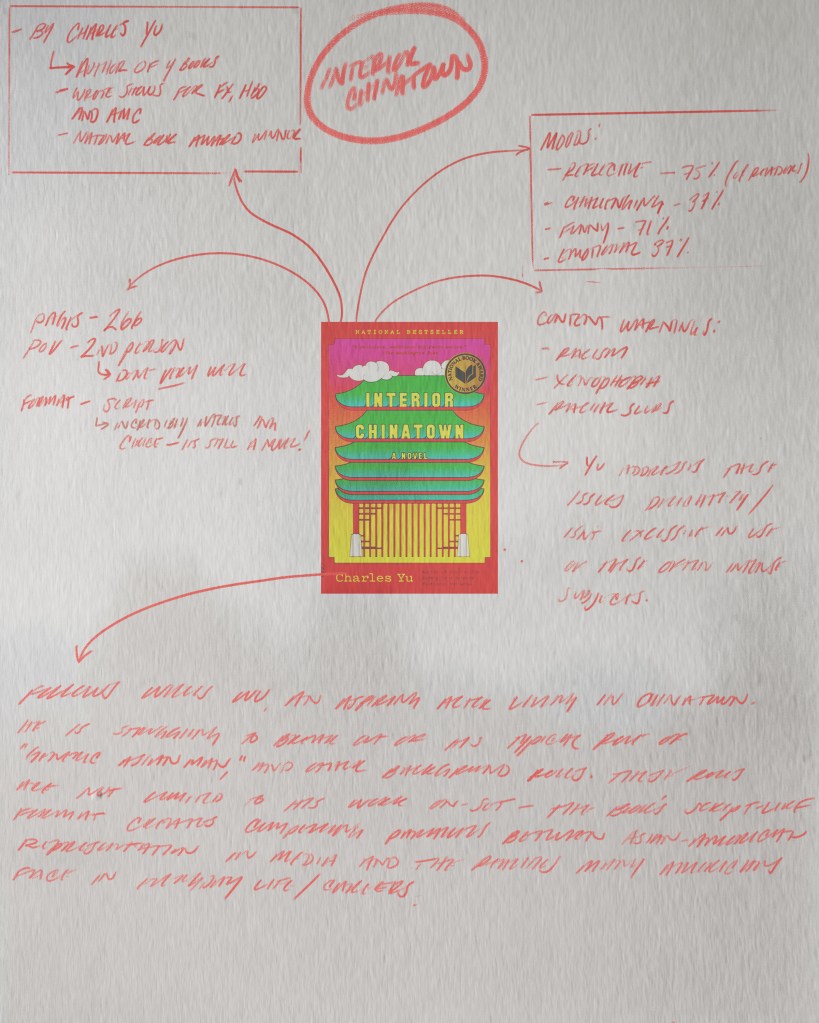 INTERIOR
CHINATOWN
- BY CHARLES YU
↳ AUTHOR OF 4 BOOKS
- WROTE SHOWS FOR FX, HBO
AND AMC
- NATIONAL BOOK AWARD WINNER
MOODS:
- REFLECTIVE - 75% (of READERS)
- CHALLENGING - 37%
- FUNNY - 71%
- EMOTIONAL 37%
PAGES - 266
POV - 2ND PERSON
↳ DONE VERY WELL
FORMAT - SCRIPT
↳ INCREDIBLY
- IT'S STILL A NOVEL!
CONTENT WARNINGS:
- RACISM
- XENOPHOBIA
- RACIAL SLURS
YU ADDRESSES THESE
ISSUES DELICATELY /
ISNT EXCESSIVE IN USE
OF THESE OFTEN INTENSE
SUBJECTS.
NATIONAL BESTSELLER
NATIONAL BOOK AWARD
WINNER
INTERIOR
CHINATOWN
A NOVEL
Charles Yu
FOLLOWS WILLIS WU, AN ASPIRING ACTOR LIVING IN CHINATOWN.
HE IS STRUGGLING TO BREAK OUT OF HIS TYPICAL ROLE OF
"GENERIC ASIAN MAN," AND OTHER BACKGROUND ROLES. THESE ROLES
ARE NOT LIMITED TO HIS WORK ON-SET - THE BOOK'S SCRIPT-LIKE
FORMAT CREATES COMPELLING PARALLELS BETWEEN ASIAN-AMERICAN
REPRESENTATION IN MEDIA AND THE REALITIES MANY AMERICANS
FACE IN EVERYDAY LIFE / CAREERS.